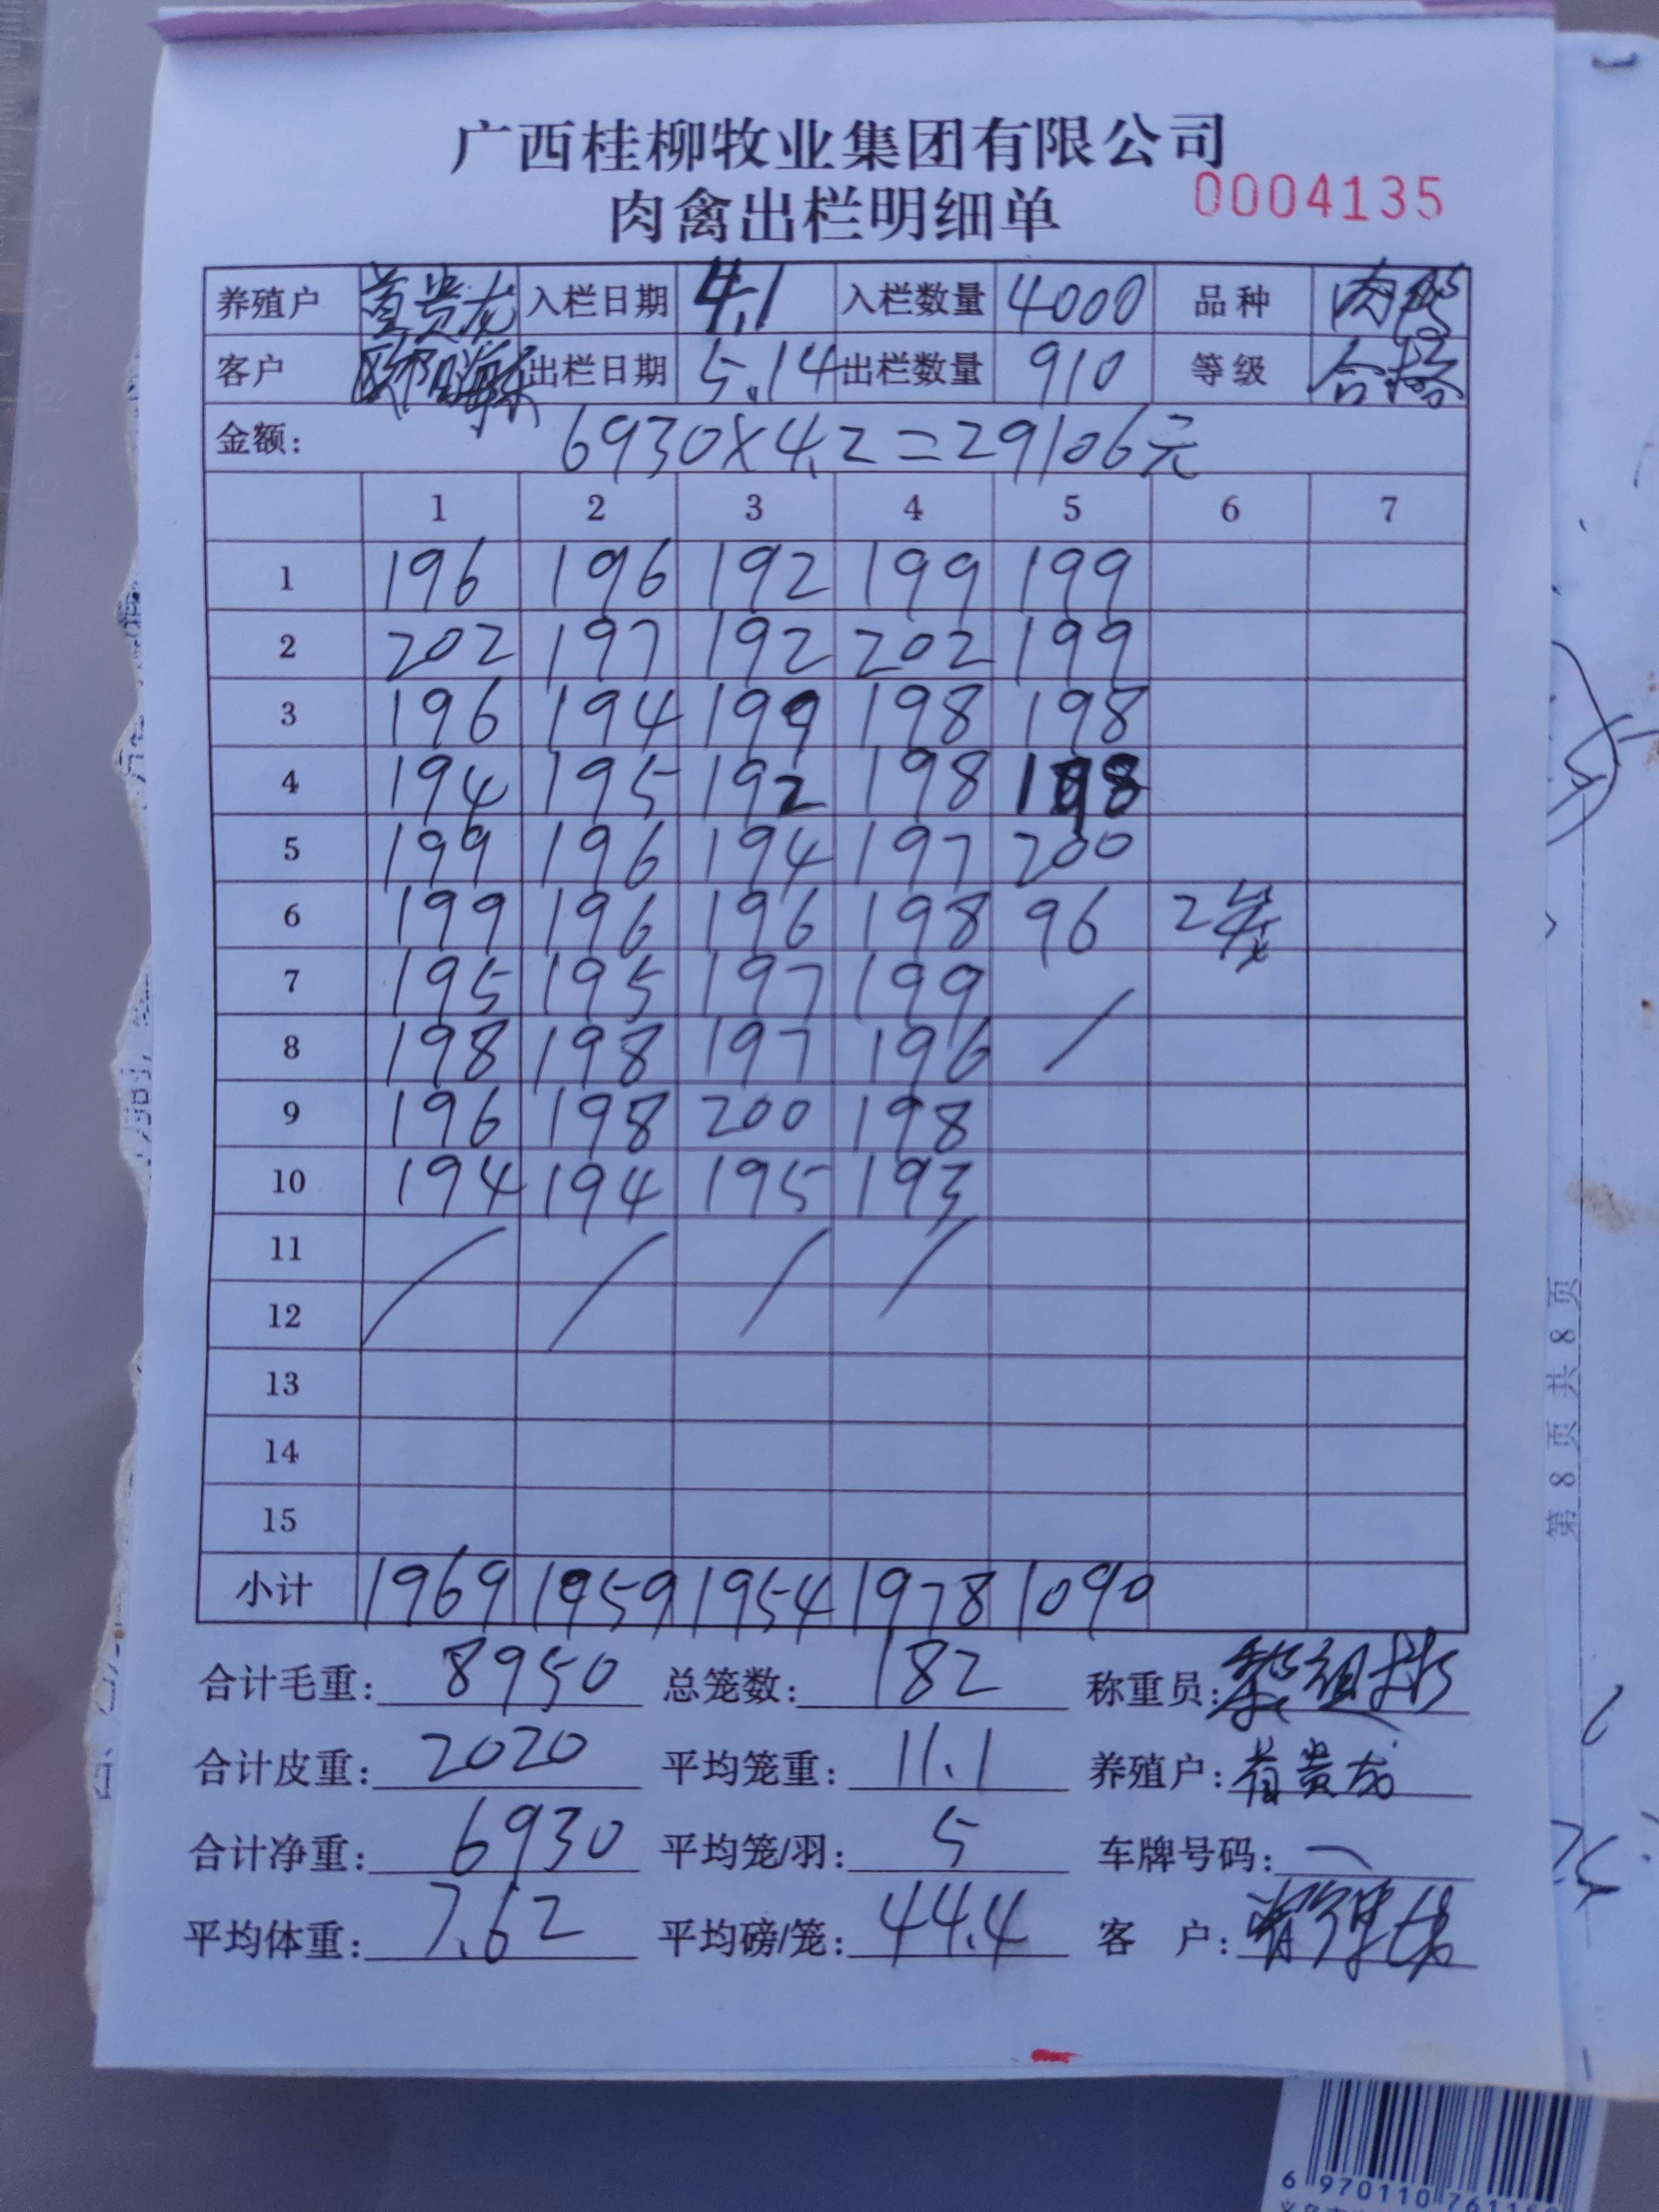 广西桂柳牧业集团有限公司
肉禽出栏明细单 0004135
养殖户 贵龙 入栏日期 4.1 入栏数量 4000 品种 肉鸭
客户 出栏日期 5.14 出栏数量 910 等级 合格
金额: 6930×4.2=29106元
1 2 3 4 5 6 7
1 196 196 192 199 199
2 202 197 192 202 199
3 196 194 199 198 198
4 194 195 192 198 198
5 199 196 194 197 200
6 199 196 196 198 96 2笼
7 195 195 197 199 /
8 198 198 197 196
9 196 198 200 198
10 194 194 195 193
11 / / / /
12
13
14
15
小计 1969 1959 1954 1978 1090
合计毛重: 8950 总笼数: 182 称重员:
合计皮重: 2020 平均笼重: 11.1 养殖户: 贵龙
合计净重: 6930 平均笼/羽: 5 车牌号码: 一
平均体重: 7.62 平均磅/笼: 44.4 客 户:
第 8 页 共 8 页
6 970110 761